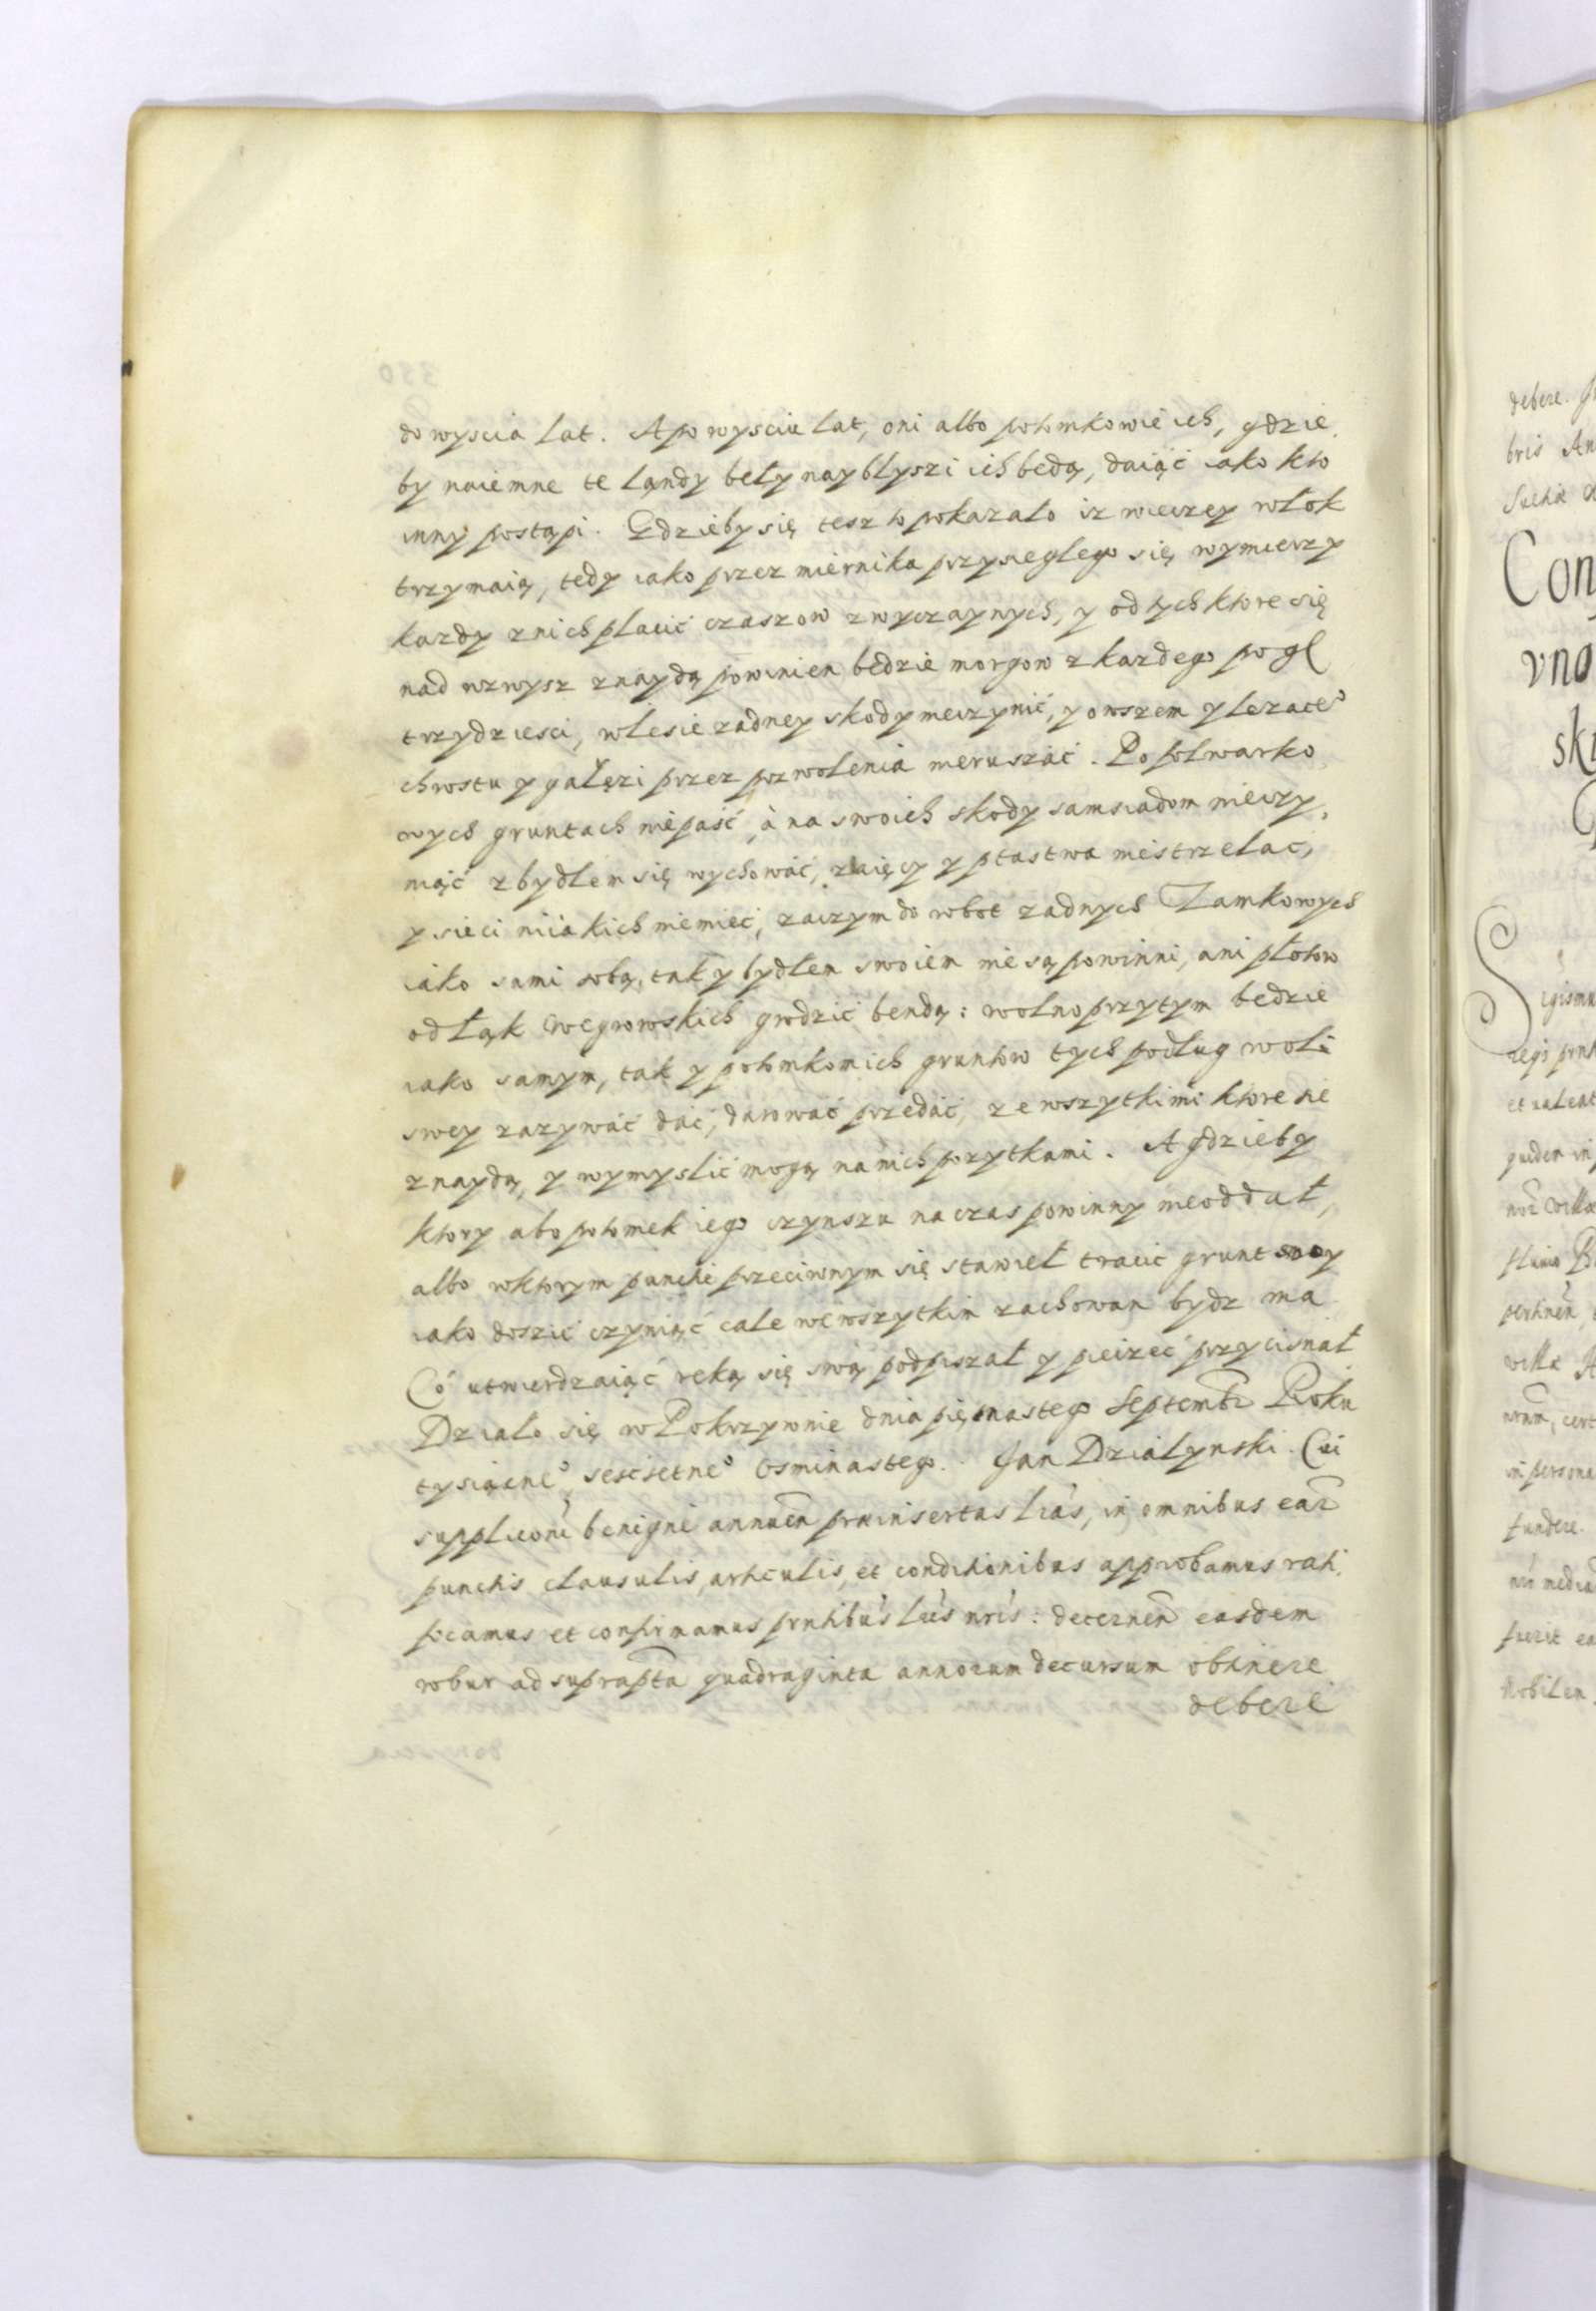 do wyscia lat. A po wysciu lat, oni albo potomkowie ich, gdzie
by naiemne te landy beły naybłyszi ich bedą, daiąć iako kto
inny postąpi. Gdzieby się tesz to pokazało isz wieczey włok
trzymaią, tedy iako przez miernika przysieglego się wymierzy
kazdy z nich placić czaszow zwyczaynych, y od tych ktore się
nad wzwysz znaydą powinien bedzie morgow z kazdego po gł
trzydziesci, w lesie zadney skody nieczynić, y owszem y lezace°
chrostu y gałęzi przez pozwolenia nieruszać. Po folwarko
wych gruntach niepaść, à na swoich skody samsiadom nieczy,
niąć z bydłem się wychować, zaięcy y ptastwa niestrzelać,
y sieci niiakich niemieć, zaczym do robot zadnych Zamkowych
iako sami sobą, tak y bydłem swoiem nie są powinni, ani płotow
od łąk Wegrowskich grodzić bendą: wolno przytym bedzie
iako samym, tak y potomkom ich gruntow tych podług woli
swey zazywać dać, darować przedać, ze wszytkimi ktore sie
znaydą, y wymyslić mogą na nich pozytkami. A gdzieby
ktory abo potomek iego czynszu na czas powinny nieoddał,
albo w ktorym punctie przeciwnym się stawieł tracic grunt swoy
iako doszić czyniąć cale we wszytkim zachowan bydz ma
Co utwierdzaiąć reką się swą podpiszał y pieizeć przycisnął
Działo się w Pokrzywnie dnia piętnastego Septembr Roku
tysiącne° sescsetne° Osminastego. Jan Działynski. Cui
suppliconi benigne annuen praeinsertas lras, in omnibus ear
punctis, clausulis, articulis, et conditionibus approbamus rati,
ficamus et confirmamus prntibus lris nris: decernen easdem
robur ad suprapta quadraginta annorum decursum obtinere
debere